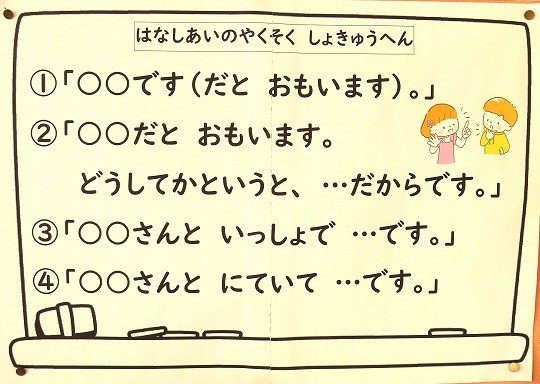 はなしあいのやくそく しょきゅうへん
①「○○です(だと おもいます)。」
②「○○だと おもいます。
どうしてかというと、…だからです。」
③「○○さんと いっしょで …です。」
④「○○さんと にていて …です。」